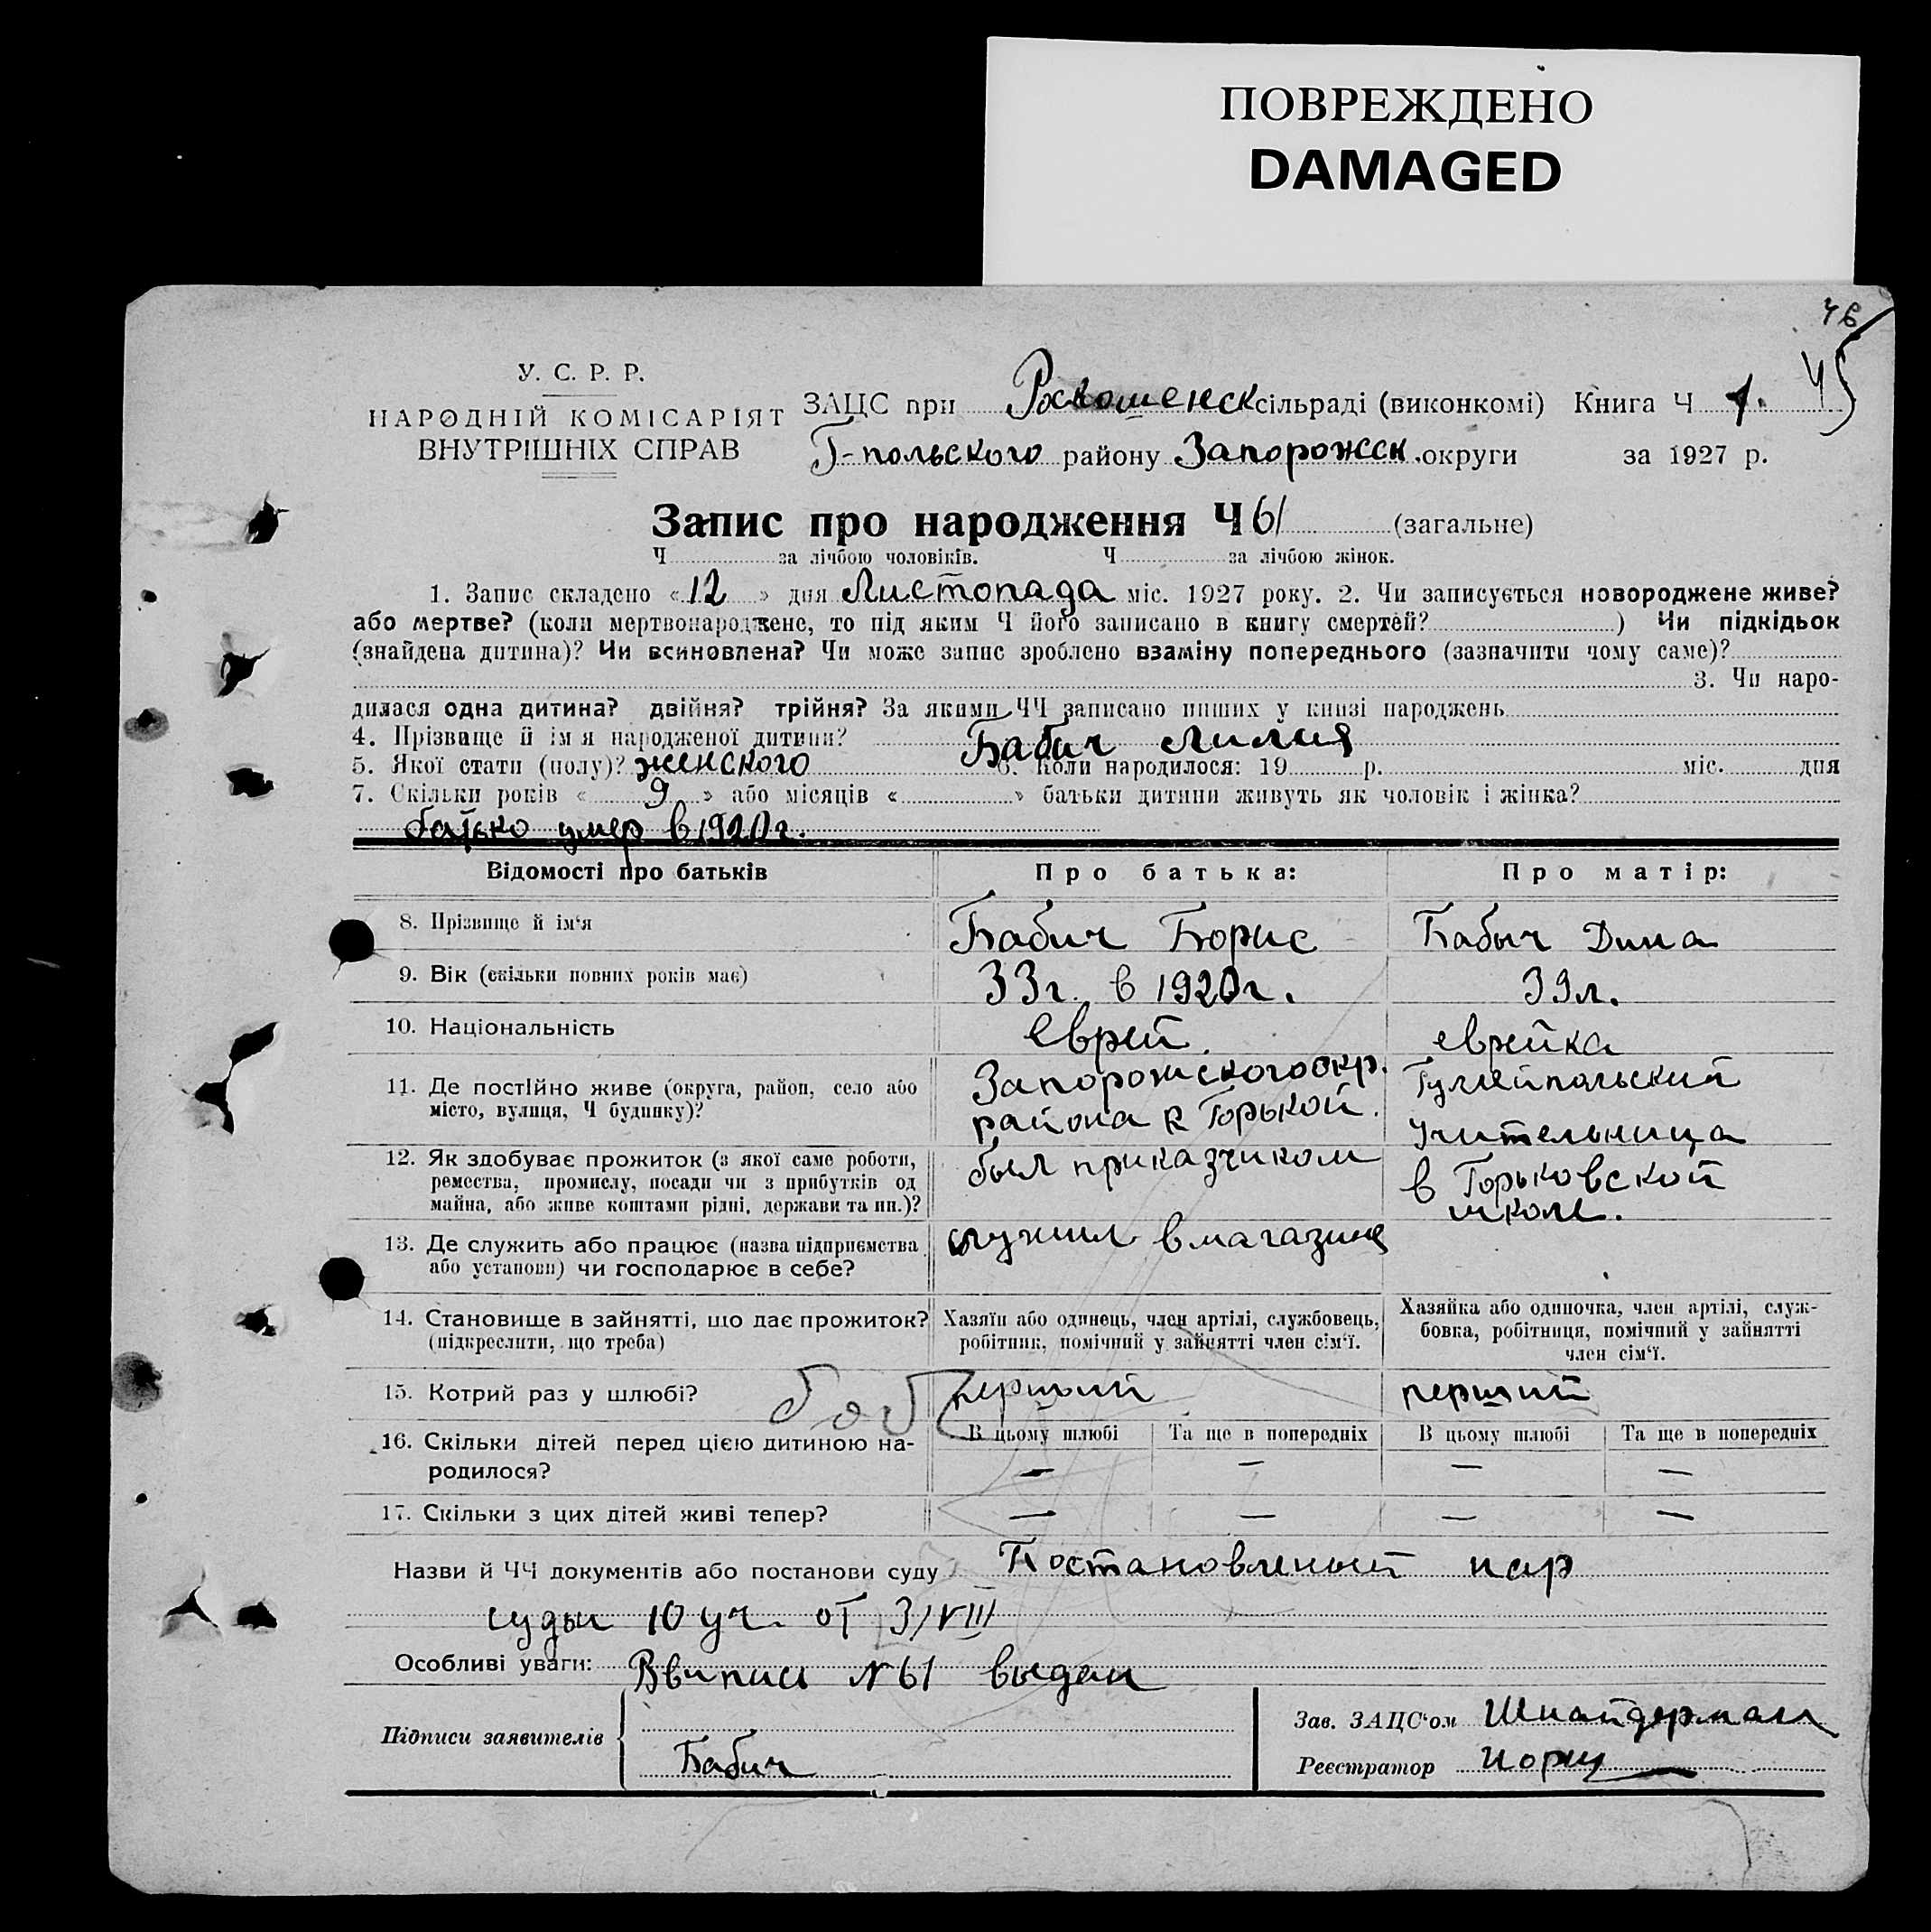 ПОВРЕЖДЕНО
DAMAGED
46
45
У. С. Р. Р.
НАРОДНІЙ КОМІСАРІЯТ
ВНУТРІШНІХ СПРАВ
ЗАЦС при сільраді (виконкомі) Книга Ч 1.
Г-польского району Запорожск. округи за 1927 р.
Запис про народження Ч 61 (загальне)
Ч за лічбою чоловіків. Ч за лічбою жінок.
1. Запис складено «12» дня Листопада міс. 1927 року. 2. Чи записується новороджене живе?
або мертве? (коли мертвонароджене, то під яким Ч його записано в книгу смертей? ) Чи підкідьок
(знайдена дитина)? Чи всиновлена? Чи може запис зроблено взаміну попереднього (зазначити чому саме)?
3. Чи наро-
дилася одна дитина? двійня? трійня? За якими ЧЧ записано инших у книзі народжень
4. Прізваще й ім я народженої дитини? Бабич Лилия
5. Якої стати (полу)? женского 6. Коли народилося: 19 р. міс. дня
7. Скільки років «9» або місяців « » батьки дитини живуть як чоловік і жінка?
батько умер в 1920 г.
Відомості про батьків Про батька: Про матір:
8. Прізвище й ім'я Бабич Борис Бабыч Дина
9. Вік (скільки повних років має) 33 г. в 1920 г. 39 л.
10. Національність еврей. еврейка
11. Де постійно живе (округа, район, село або Запорожского окр. Гуляйпольский
місто, вулиця, Ч будинку)? района к. Горькой.
12. Як здобуває прожиток (з якої саме роботи, был приказчиком учительница
ремества, промислу, посади чи з прибутків од в Горьковской
майна, або живе коштами рідні, держави та ин.)? школе.
13. Де служить або працює (назва підприємства служил в магазине
або установи) чи господарює в себе?
14. Становище в зайнятті, що дає прожиток? Хазяїн або одинець, член артілі, службовець, Хазяйка або одиночка, член артілі, служ-
(підкреслити, що треба) робітник, помічний у зайнятті член сім'ї. бовка, робітниця, помічний у зайнятті
член сім'ї.
15. Котрий раз у шлюбі? первый первый
16. Скільки дітей перед цією дитиною на- В цьому шлюбі Та ще в попередніх В цьому шлюбі Та ще в попередніх
родилося? — — — —
17. Скільки з цих дітей живі тепер? — — — —
Назви й ЧЧ документів або постанови суду Постановленый нар
судьи 10 уч. от 3/VIII
Особливі уваги: Ввипись N 61 выдан
Підписи заявителів Бабич
Зав. ЗАЦС'ом Шнайдерман
Реєстратор